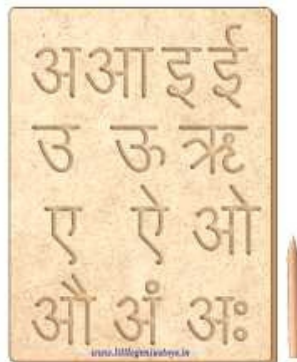 अ आ इ ई
उ ऊ ऋ
ए ऐ ओ
औ अं अः
www.littlegeniustoys.in